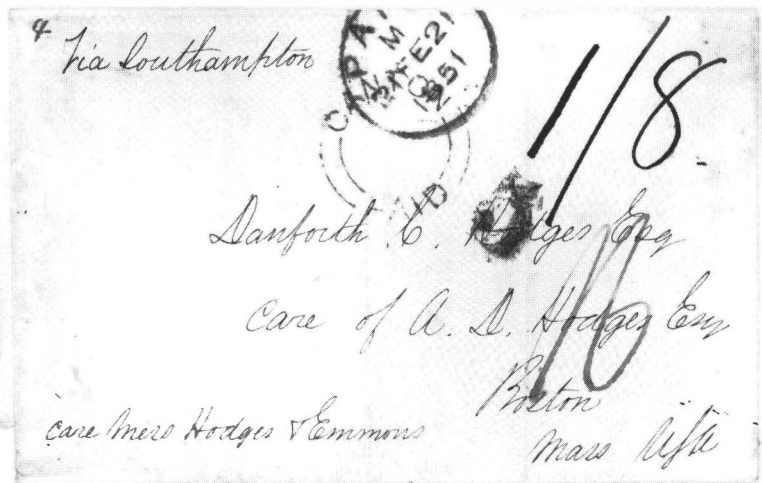 Via Southampton
1/8
Danforth C. Hodges Esq
Care of A. D. Hodges Esq
Boston
Mass USA
care Mess Hodges & Emmons
1851